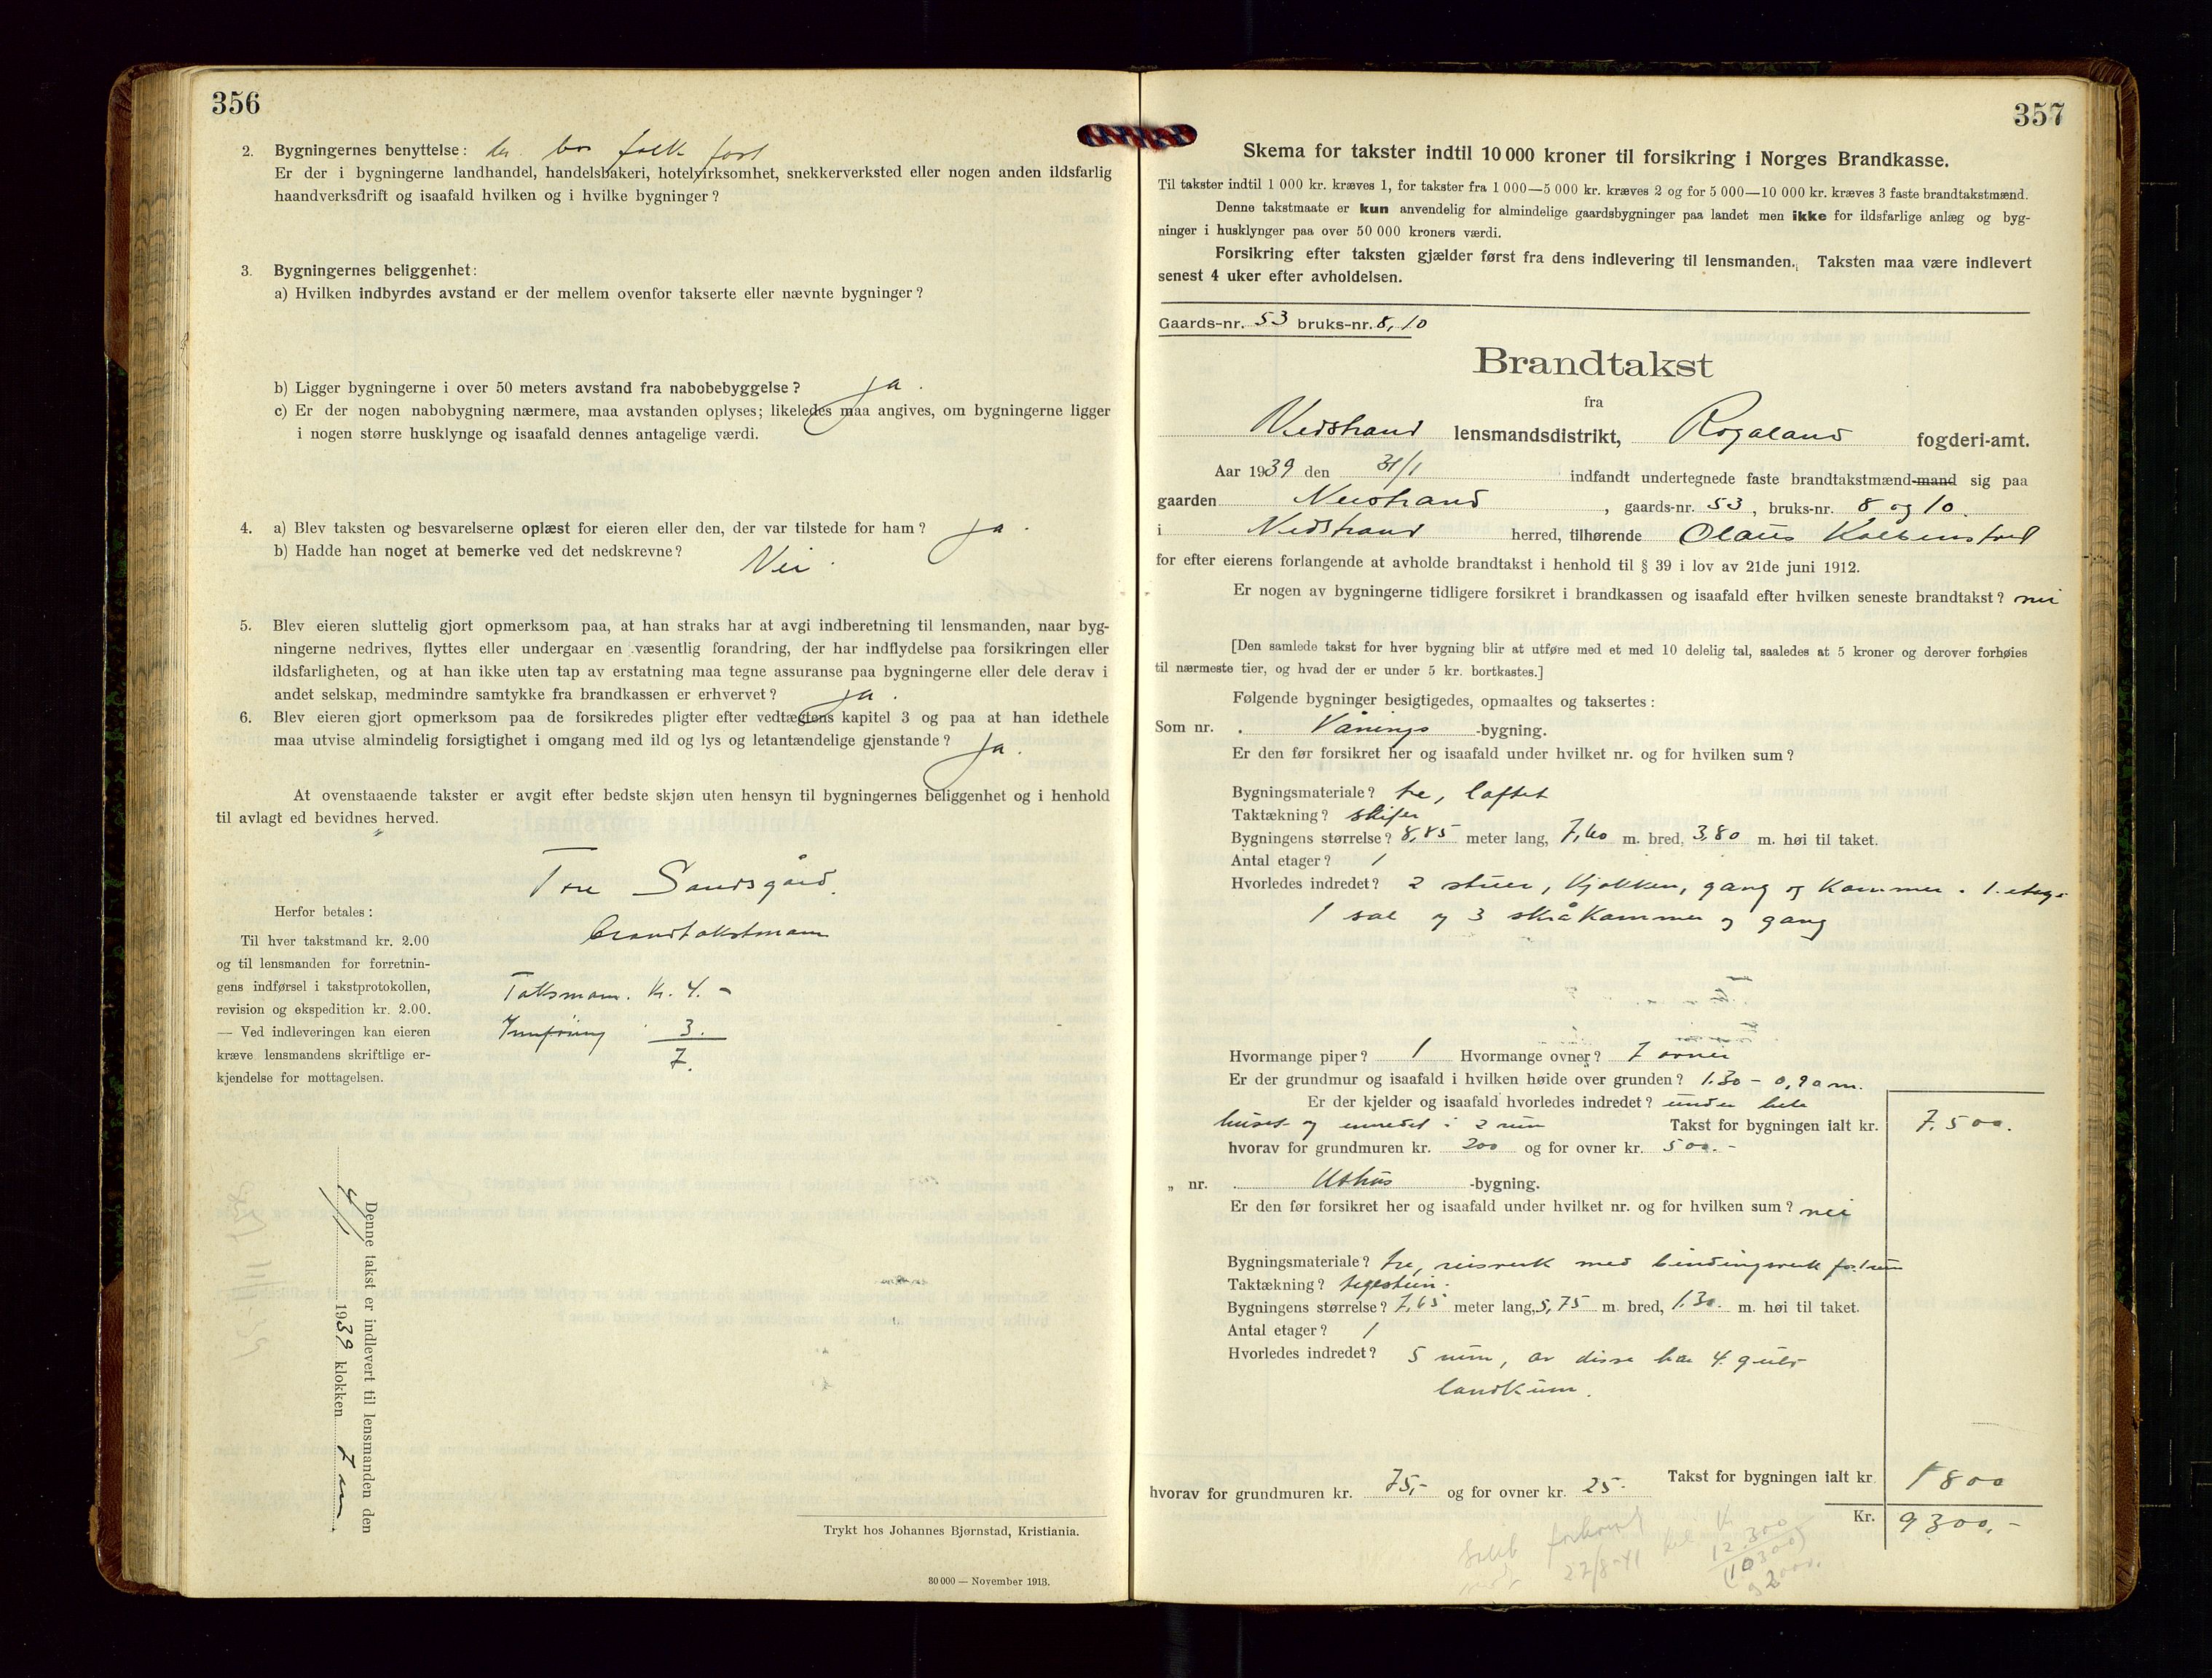 356
2. Bygningernes benyttelse: der bor folk fast
Er der i bygningerne landhandel, handelsbakeri, hotelvirksomhet, snekkerverksted eller nogen anden ildsfarlig
haandverksdrift og isaafald hvilken og i hvilke bygninger?
3. Bygningernes beliggenhet:
a) Hvilken indbyrdes avstand er der mellem ovenfor takserte eller nævnte bygninger?
b) Ligger bygningerne i over 50 meters avstand fra nabobebyggelse? ja.
c) Er der nogen nabobygning nærmere, maa avstanden oplyses; likeledes maa angives, om bygningerne ligger
i nogen større husklynge og isaafald dennes antagelige værdi.
4. a) Blev taksten og besvarelserne oplæst for eieren eller den, der var tilstede for ham? ja.
b) Hadde han noget at bemerke ved det nedskrevne? Nei.
5. Blev eieren sluttelig gjort opmerksom paa, at han straks har at avgi indberetning til lensmanden, naar byg-
ningerne nedrives, flyttes eller undergaar en væsentlig forandring, der har indflydelse paa forsikringen eller
ildsfarligheten, og at han ikke uten tap av erstatning maa tegne assuranse paa bygningerne eller dele derav i
andet selskap, medmindre samtykke fra brandkassen er erhvervet? ja.
6. Blev eieren gjort opmerksom paa de forsikredes pligter efter vedtægtens kapitel 3 og paa at han idethele
maa utvise almindelig forsigtighet i omgang med ild og lys og letantændelige gjenstande? ja.
At ovenstaaende takster er avgit efter bedste skjøn uten hensyn til bygningernes beliggenhet og i henhold
til avlagt ed bevidnes herved.
Tore Sandsgård.
brandtakstmann
Herfor betales:
Til hver takstmand kr. 2.00
og til lensmanden for forretnin-
gens indførsel i takstprotokollen,
revision og ekspedition kr. 2.00.
— Ved indleveringen kan eieren
kræve lensmandens skriftlige er-
kjendelse for mottagelsen.
Taksmann. Kr. 4. -
Innføring 3.
7.
Denne takst er indlevert til lensmanden den
1939 klokken 7 em.
Trykt hos Johannes Bjørnstad, Kristiania.
30 000 — November 1913.
357
Skema for takster indtil 10 000 kroner til forsikring i Norges Brandkasse.
Til takster indtil 1 000 kr. kræves 1, for takster fra 1 000—5 000 kr. kræves 2 og for 5 000—10 000 kr. kræves 3 faste brandtakstmænd.
Denne takstmaate er kun anvendelig for almindelige gaardsbygninger paa landet men ikke for ildsfarlige anlæg og byg-
ninger i husklynger paa over 50 000 kroners værdi.
Forsikring efter taksten gjælder først fra dens indlevering til lensmanden. Taksten maa være indlevert
senest 4 uker efter avholdelsen.
Gaards-nr. 53 bruks-nr. 8, 10
Brandtakst
fra
Nedstrand lensmandsdistrikt, Rogaland fogderi-amt.
Aar 1939 den 31/1 indfandt undertegnede faste brandtakstmænd-mand sig paa
gaarden Nedstrand, gaards-nr. 53, bruks-nr. 8 og 10.
i Nedstrand herred, tilhørende Olaus
for efter eierens forlangende at avholde brandtakst i henhold til § 39 i lov av 21de juni 1912.
Er nogen av bygningerne tidligere forsikret i brandkassen og isaafald efter hvilken seneste brandtakst? nei
[Den samlede takst for hver bygning blir at utføre med et med 10 delelig tal, saaledes at 5 kroner og derover forhøies
til nærmeste tier, og hvad der er under 5 kr. bortkastes.]
Følgende bygninger besigtigedes, opmaaltes og taksertes:
Som nr. . Vånings -bygning.
Er den før forsikret her og isaafald under hvilket nr. og for hvilken sum?
Bygningsmateriale? tre, laftet
Taktækning? skifer
Bygningens størrelse? 8,85 meter lang, 7,60 m. bred, 3,80 m. høi til taket.
Antal etager? 1
Hvorledes indredet? 2 stuer, Kjøkken, gang og Kammer i 1. etage
1 sal og 3 skråkammer og gang
Hvormange piper? 1 Hvormange ovner? 7 ovner
Er der grundmur og isaafald i hvilken høide over grunden? 1.30 - 0,90 m.
Er der kjelder og isaafald hvorledes indredet? under hele
huset og innredet i 2 rum Takst for bygningen ialt kr. 7.500.
hvorav for grundmuren kr. 200 og for ovner kr. 500.-
„ nr. . Uthus -bygning.
Er den før forsikret her og isaafald under hvilket nr. og for hvilken sum? nei
Bygningsmateriale? tre, reisverk med bindingsverk
Taktækning? teglstein.
Bygningens størrelse? 7,65 meter lang, 5,75 m. bred, 1.30. m. høi til taket.
Antal etager? 1
Hvorledes indredet? 5 rum, av disse har 4 gulv
landkum.
Takst for bygningen ialt kr. 1800
hvorav for grundmuren kr. 75,- og for ovner kr. 25.
Kr. 9300,-
forhøiet
22/8-41 til Kr
12.300
(10300)